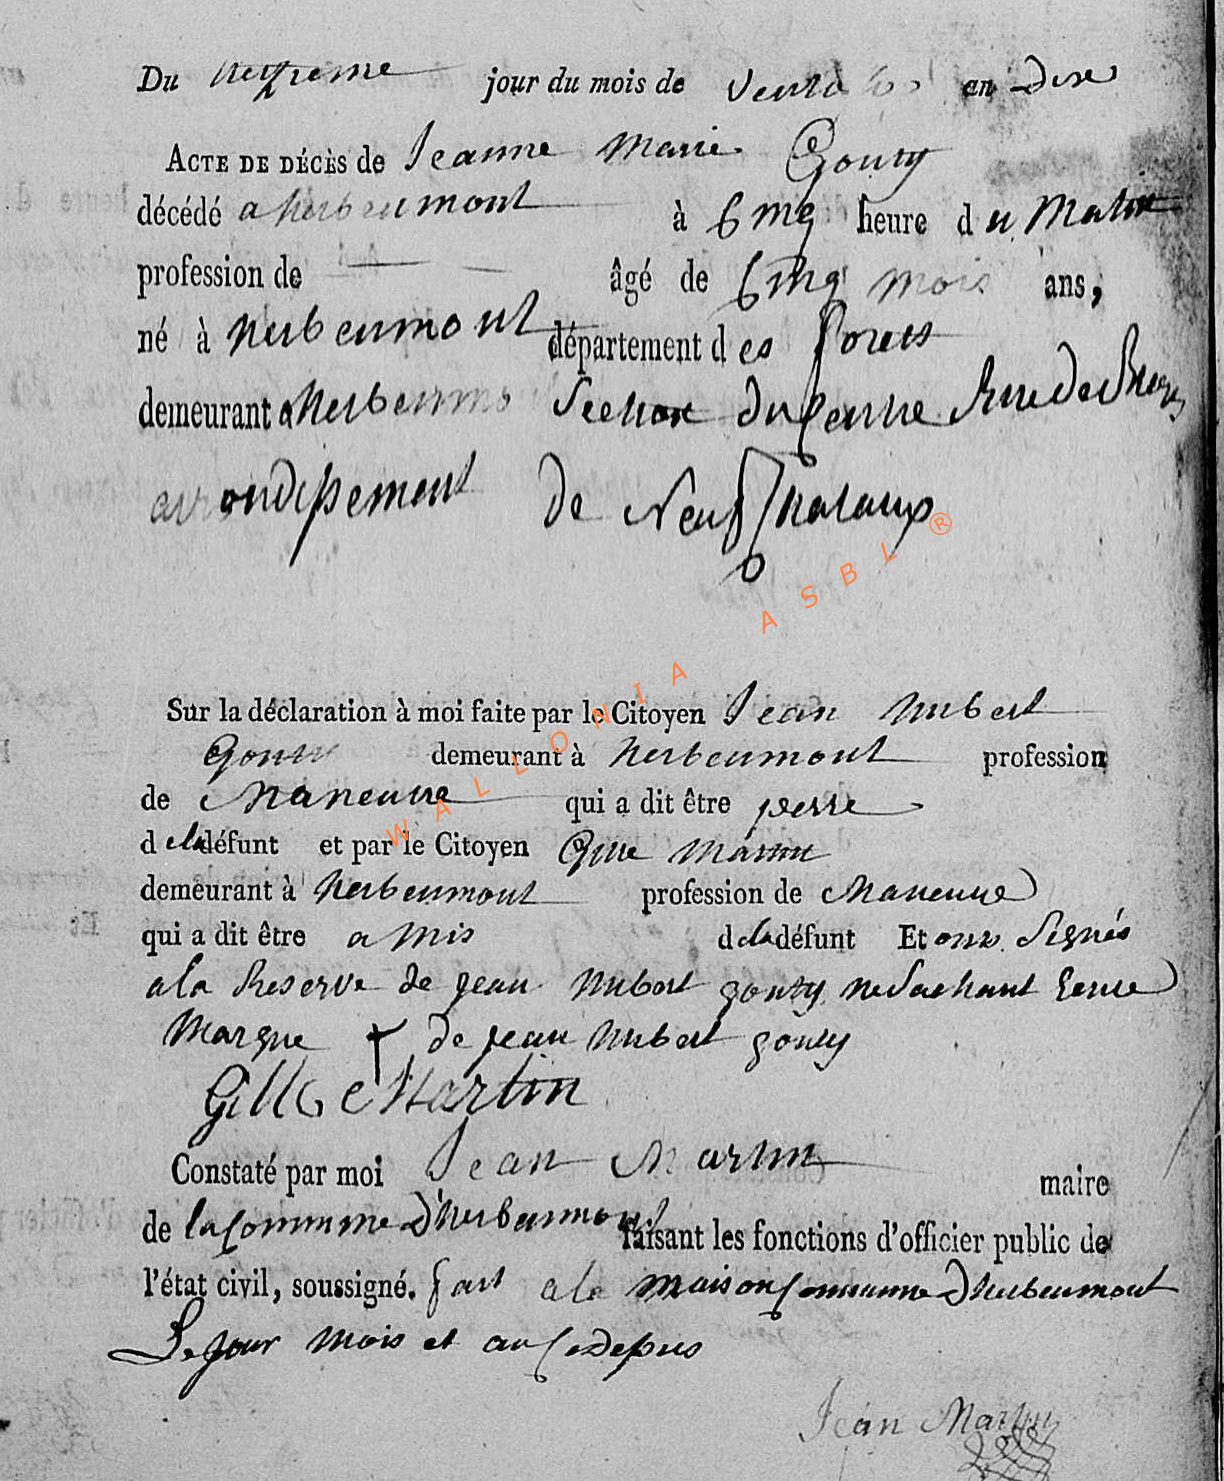 Du neufieme jour du mois de Vento an dix
ACTE DE DÉCÈS de Jeanne Marie Goury
décédé a herbeumont à Cinq heure du Matin
profession de âgé de Cinq mois ans,
né à herbeumont département des forets
demeurant a herbeumo Section du Centre Rue des
arrondissement de Neufchataux
WALLONIA ASBL ®
Sur la déclaration à moi faite par le Citoyen Jean hubert
Goury demeurant à herbeumont profession
de Maneuvre qui a dit être perre
d ela défunt et par le Citoyen Gille Martin
demeurant à herbeumont profession de Maneuvre
qui a dit être amis dela défunt Et onz Signés
ala Reserve de jean hubert goury ne sachant Ecrire
Marque † de jean hubert goury
Gille Martin
Constaté par moi Jean Martin maire
de la Commune d'herbeumont faisant les fonctions d'officier public de
l'état civil, soussigné. fait a la maison Commune d'herbeumont
Le jour mois et an Cidessus
Jean Martin